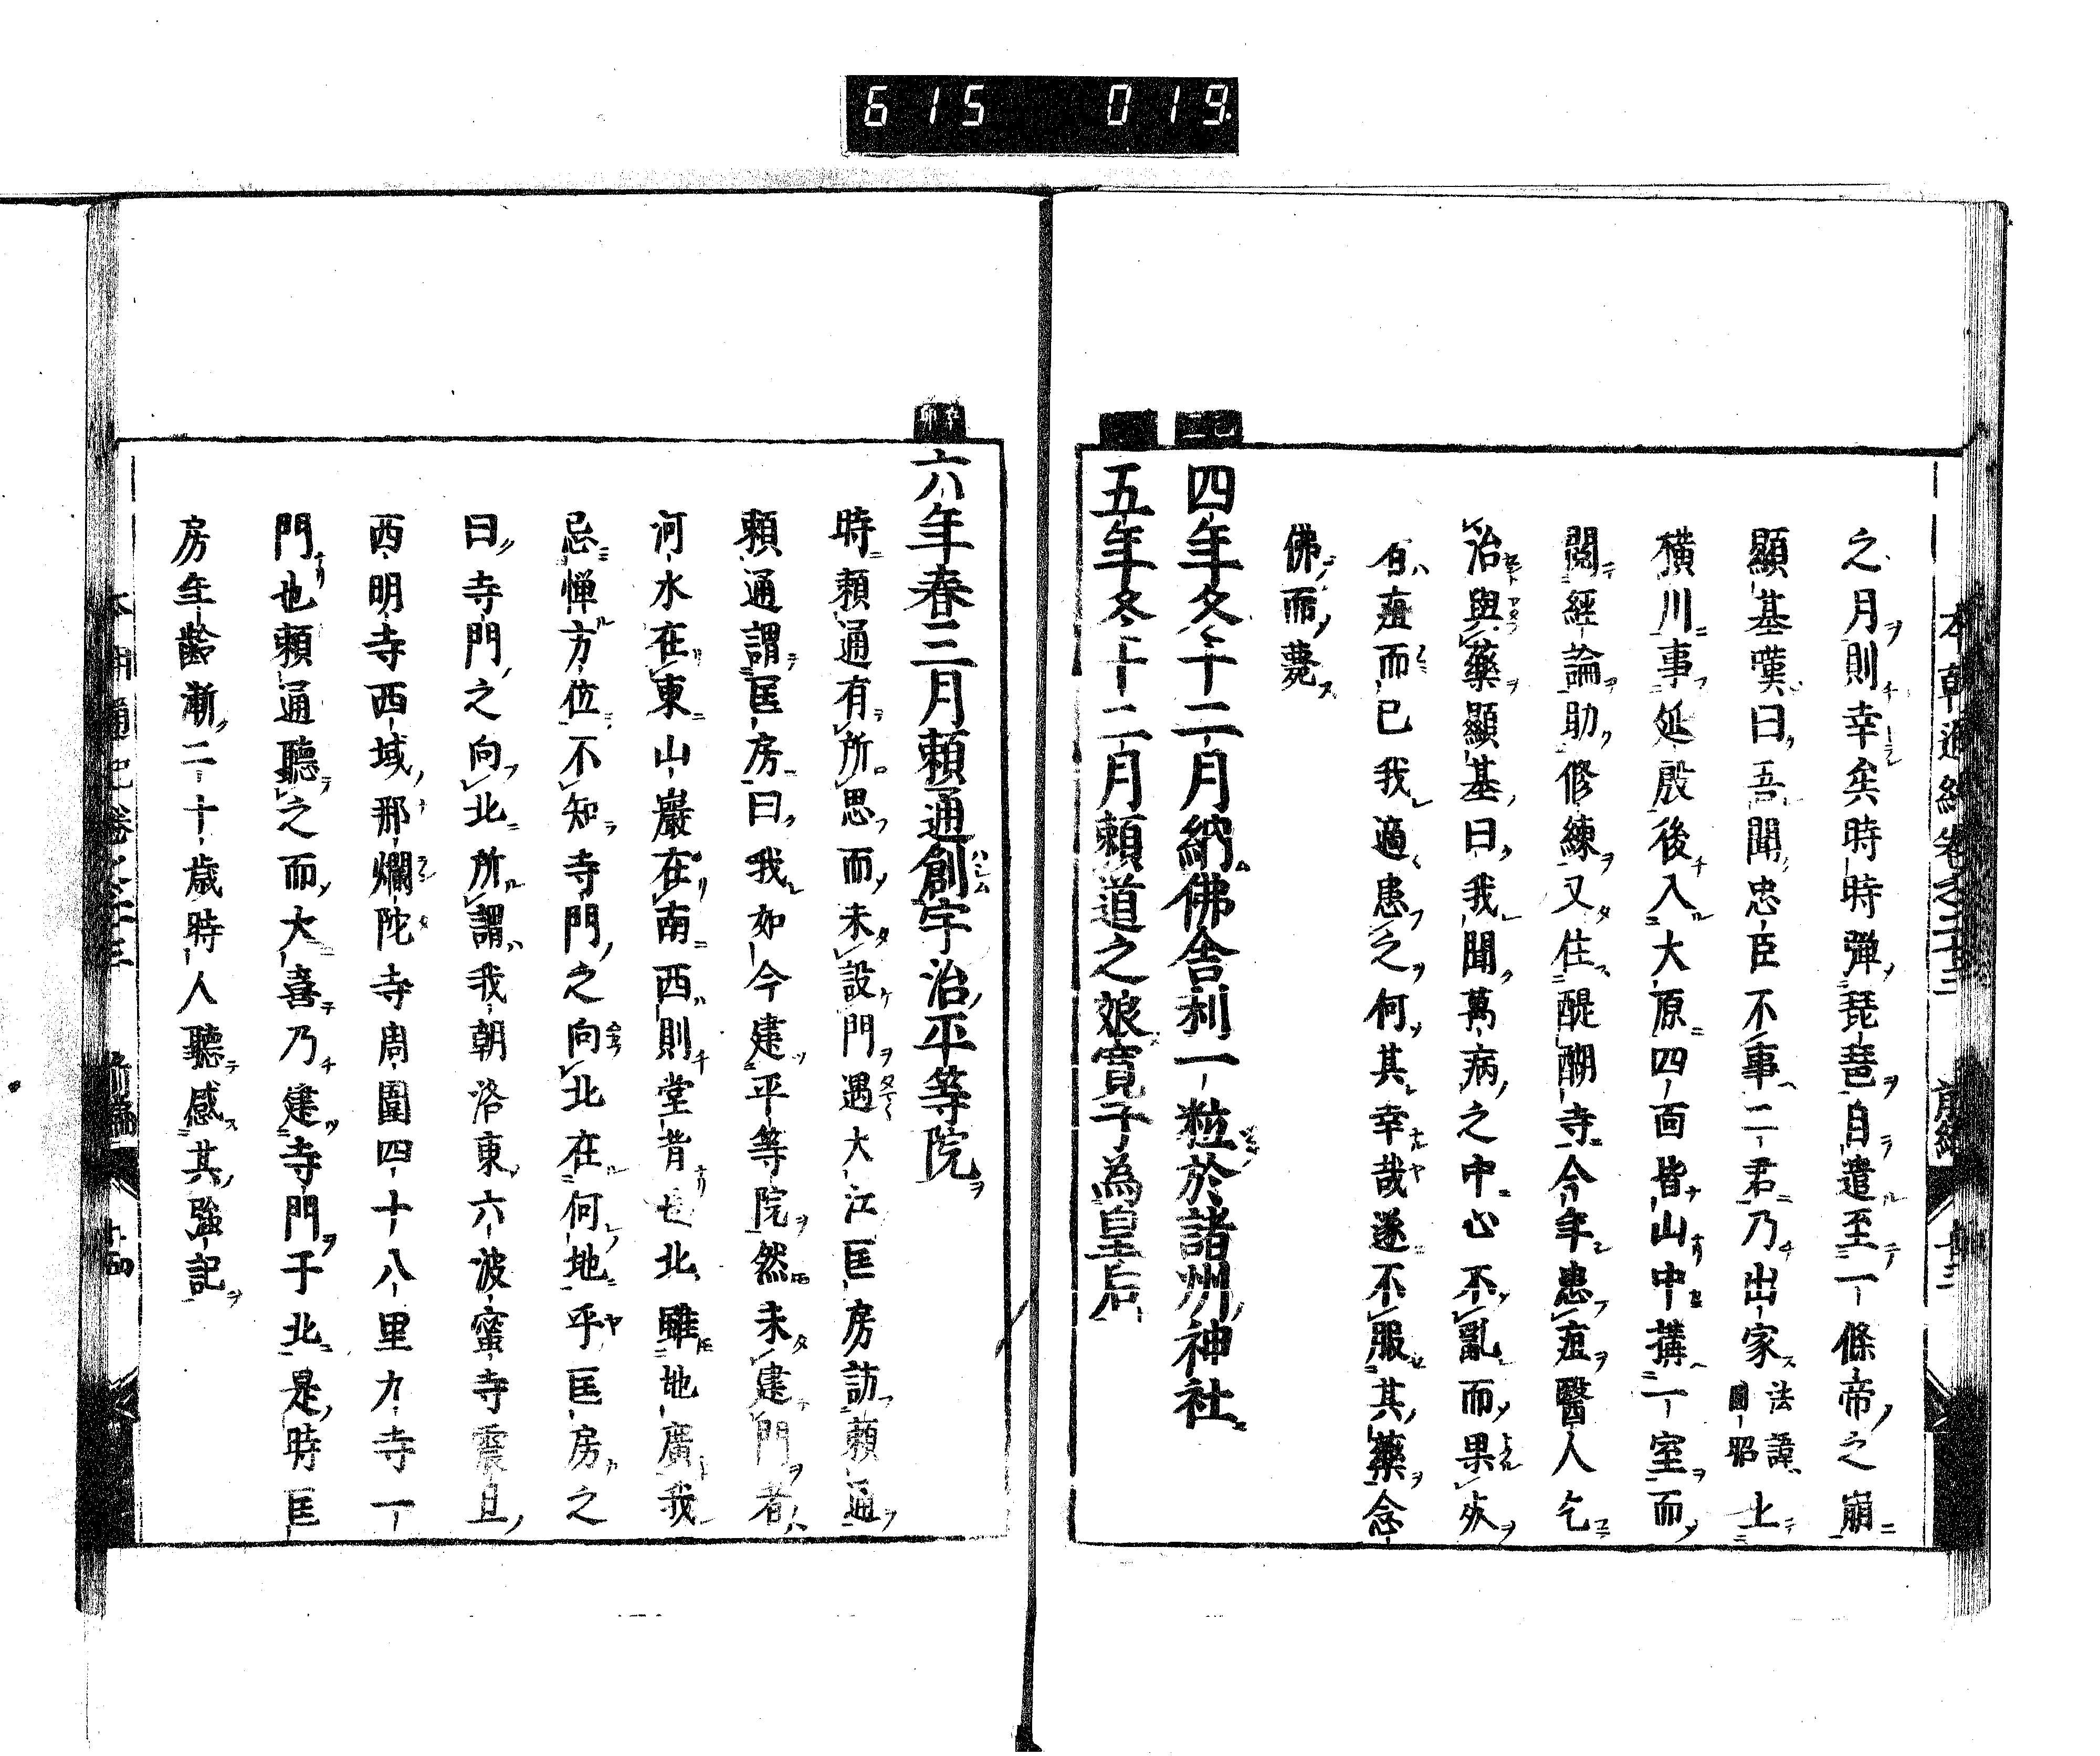 615 019
之月則幸矣時時彈琵琶自遣至一條帝之崩
顯基嘆曰吾聞忠臣不事二君乃出家法諱圓昭上
橫川事延殷後入大原四面皆山中搆一室而
閱經論助修練又住醍醐寺今年患疽醫人乞
治與藥顯基曰我聞萬病之中心不亂而果㪽
者疽而已我適患之何其幸哉遂不服其藥念
佛而薨
四年冬十二月納佛舍利一粒於諸州神社
五年冬十二月賴道之娘寬子為皇后
六年春三月賴通創宇治平等院
時賴通有所思而未設門遇大江匡房訪賴通
賴通謂匡房曰我如今建平等院然未建門者
河水在東山巖在南西則堂背也北雖地廣我
忌憚方位不知寺門之向北在何地乎匡房之
曰寺門之向北所謂我朝洛東六波蜜寺震旦
西明寺西域那爛陀寺周圍四十八里九寺一
門也賴通聽之而大喜乃建寺門于北是時匡
房年齡漸二十歲時人聽感其強記